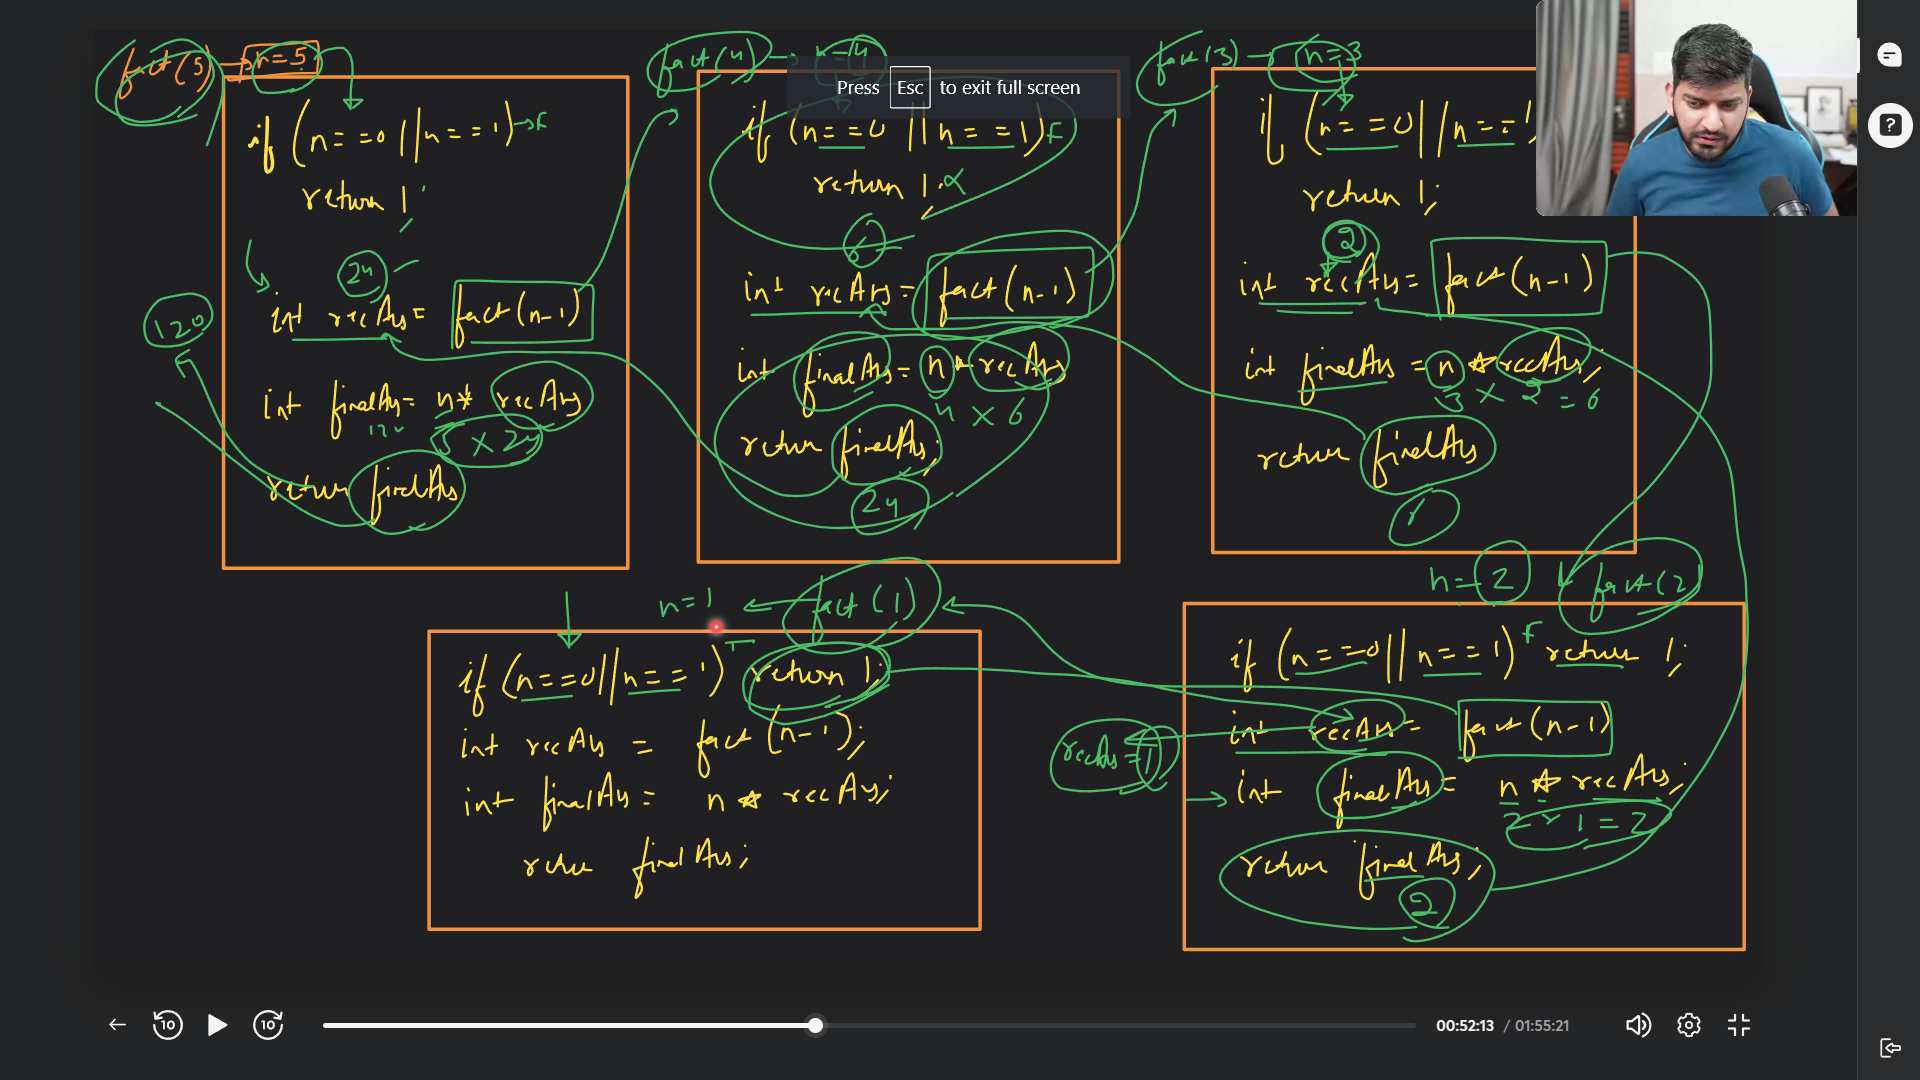 fact(5) → n=5
if (n==0 || n==1) → F
return 1
24
int recAns = fact(n-1)
120
int finalAns = n* recAns
120
5 X 24
return finalAns
fact(4) → n=4
Press Esc to exit full screen
if (n==0 || n==1) F
return 1.
6
int recAns = fact(n-1)
int finalAns = n * recAns
4 X 6
return finalAns;
24
fact(3) → n=3
if (n==0 || n==1
return 1;
2
int recAns = fact(n-1)
int finalAns = n * recAns;
3 X 2 = 6
return finalAns
n=1 ← fact(1)
if (n==0 || n==1) T return 1;
int recAns = fact(n-1);
int finalAns = n * recAns;
return finalAns;
n=2 fact(2)
if (n==0 || n==1) F return 1;
int recAns = fact(n-1)
recAns = 1
int finalAns = n * recAns;
2 * 1 = 2
return finalAns;
2
10
10
00:52:13 / 01:55:21